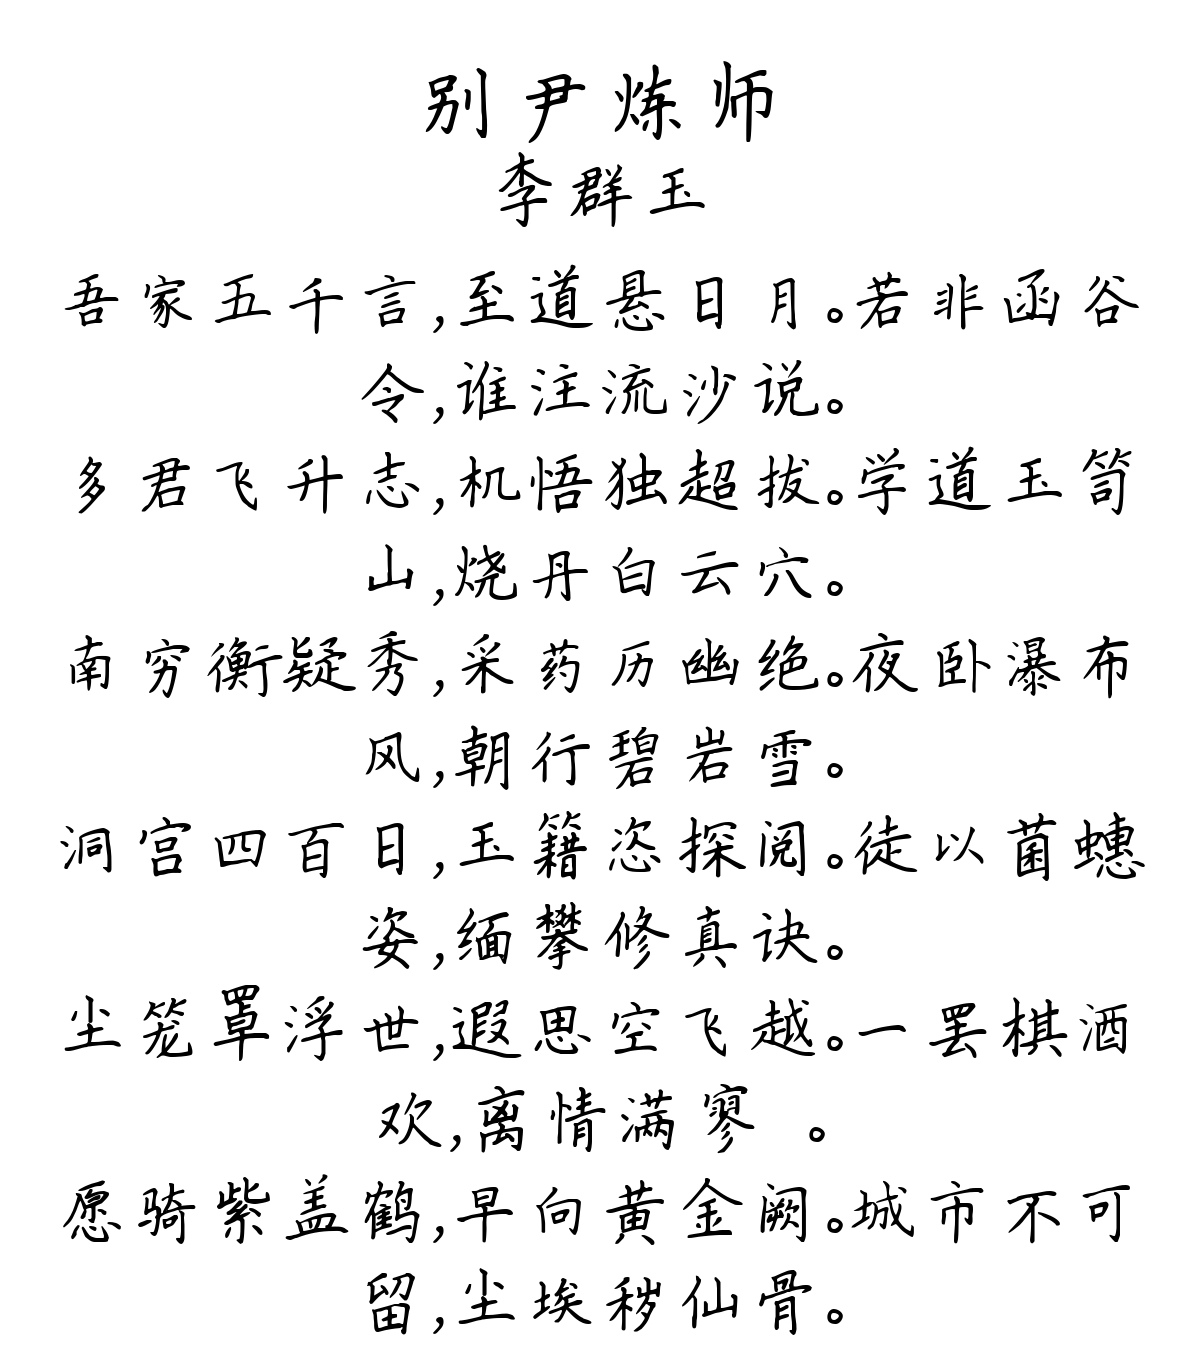 别尹炼师
李群玉
吾家五千言,至道悬日月。若非函谷
令,谁注流沙说。
多君飞升志,机悟独超拔。学道玉笥
山,烧丹白云穴。
南穷衡疑秀,采药历幽绝。夜卧瀑布
风,朝行碧岩雪。
洞宫四百日,玉籍恣探阅。徒以菌蟪
姿,缅攀修真诀。
尘笼罩浮世,遐思空飞越。一罢棋酒
欢,离情满寥 。
愿骑紫盖鹤,早向黄金阙。城市不可
留,尘埃秽仙骨。